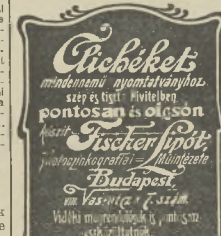 Clichéket
mindennemű nyomtatványhoz
szép és tiszta kivitelben
pontosan és olcsón
készít
Fischer Lipót,
Műintézete
Budapest
VIII. Vas-utcza 7. szám.
Vidéki megrendelések is pontosan